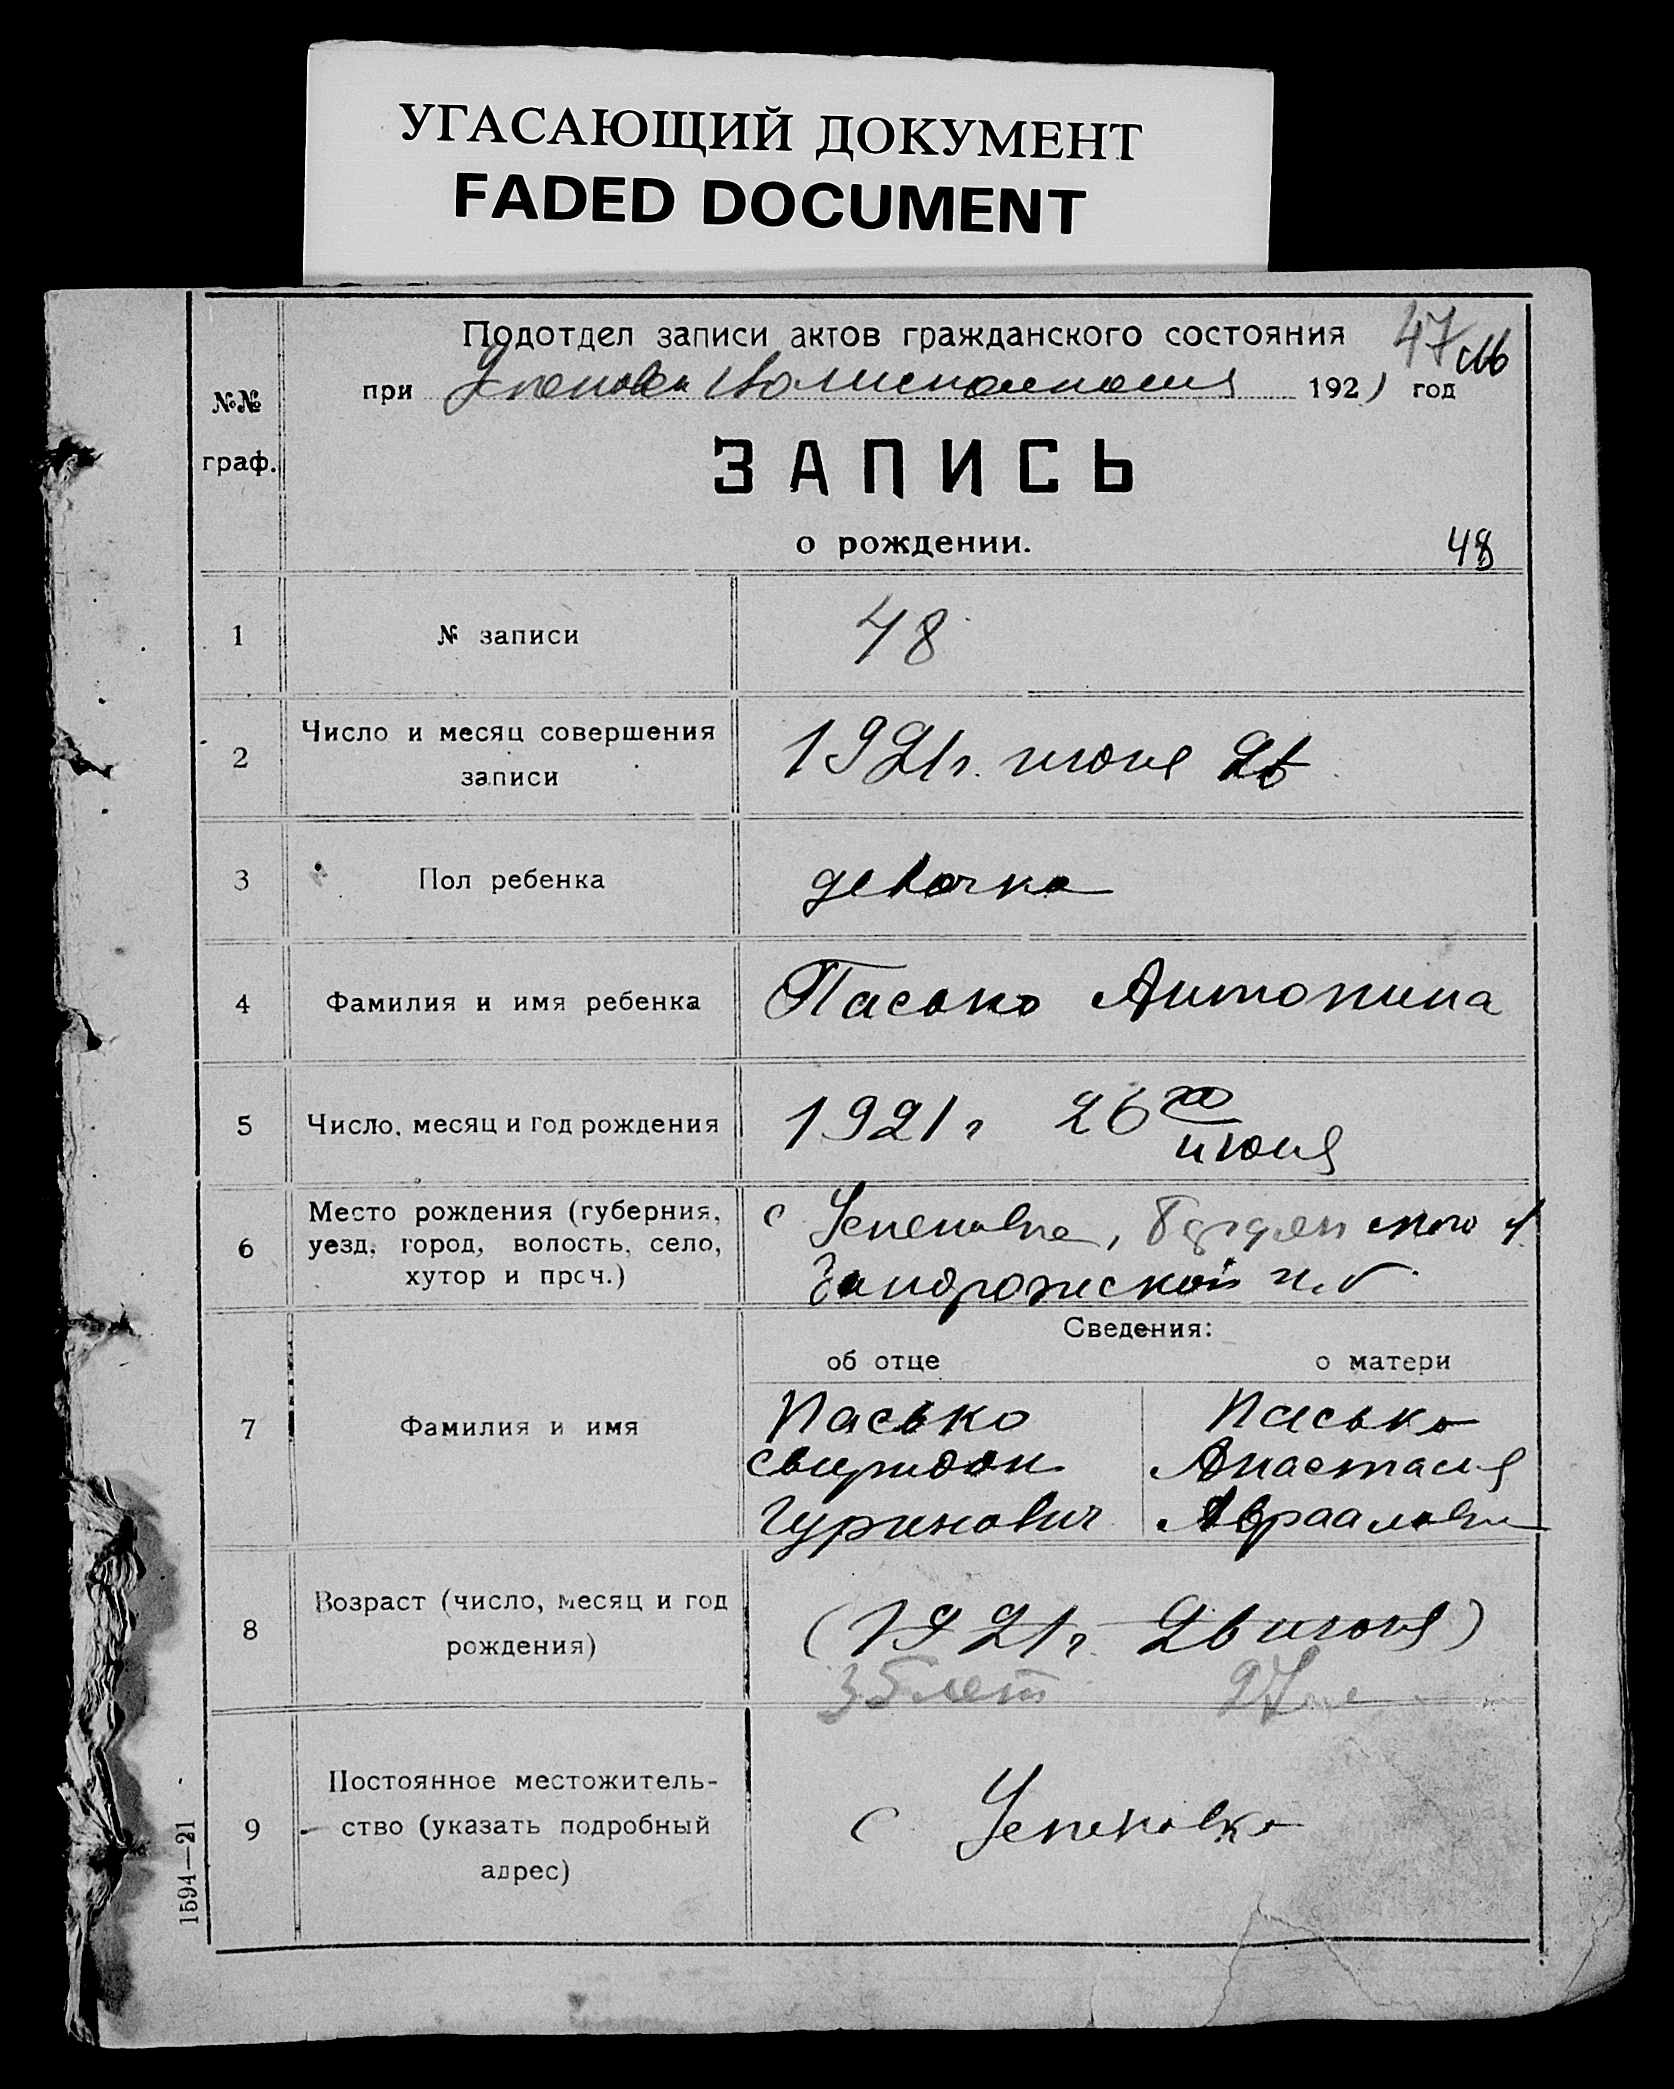 УГАСАЮЩИЙ ДОКУМЕНТ
FADED DOCUMENT
Подотдел записи актов гражданского состояния
47
при 1921 год
№№
граф.
ЗАПИСЬ
о рождении.
48
1 № записи 48
2 Число и месяц совершения
записи
1921 г. июня 26
3 Пол ребенка девочка
4 Фамилия и имя ребенка Пасько Антонина
5 Число, месяц и год рождения 1921 г 26го
июня
6 Место рождения (губерния,
уезд, город, волость, село,
хутор и проч.)
с Успеновка,
Запорожской
Сведения:
об отце о матери
7 Фамилия и имя
Пасько
Свиридон
Гуринович
Пасько
Анастасия
8 Возраст (число, месяц и год
рождения)
(1921 г. 26 июня)
35 лет 27
9 Постоянное местожитель-
ство (указать подробный
адрес)
с Успеновка
1594—21